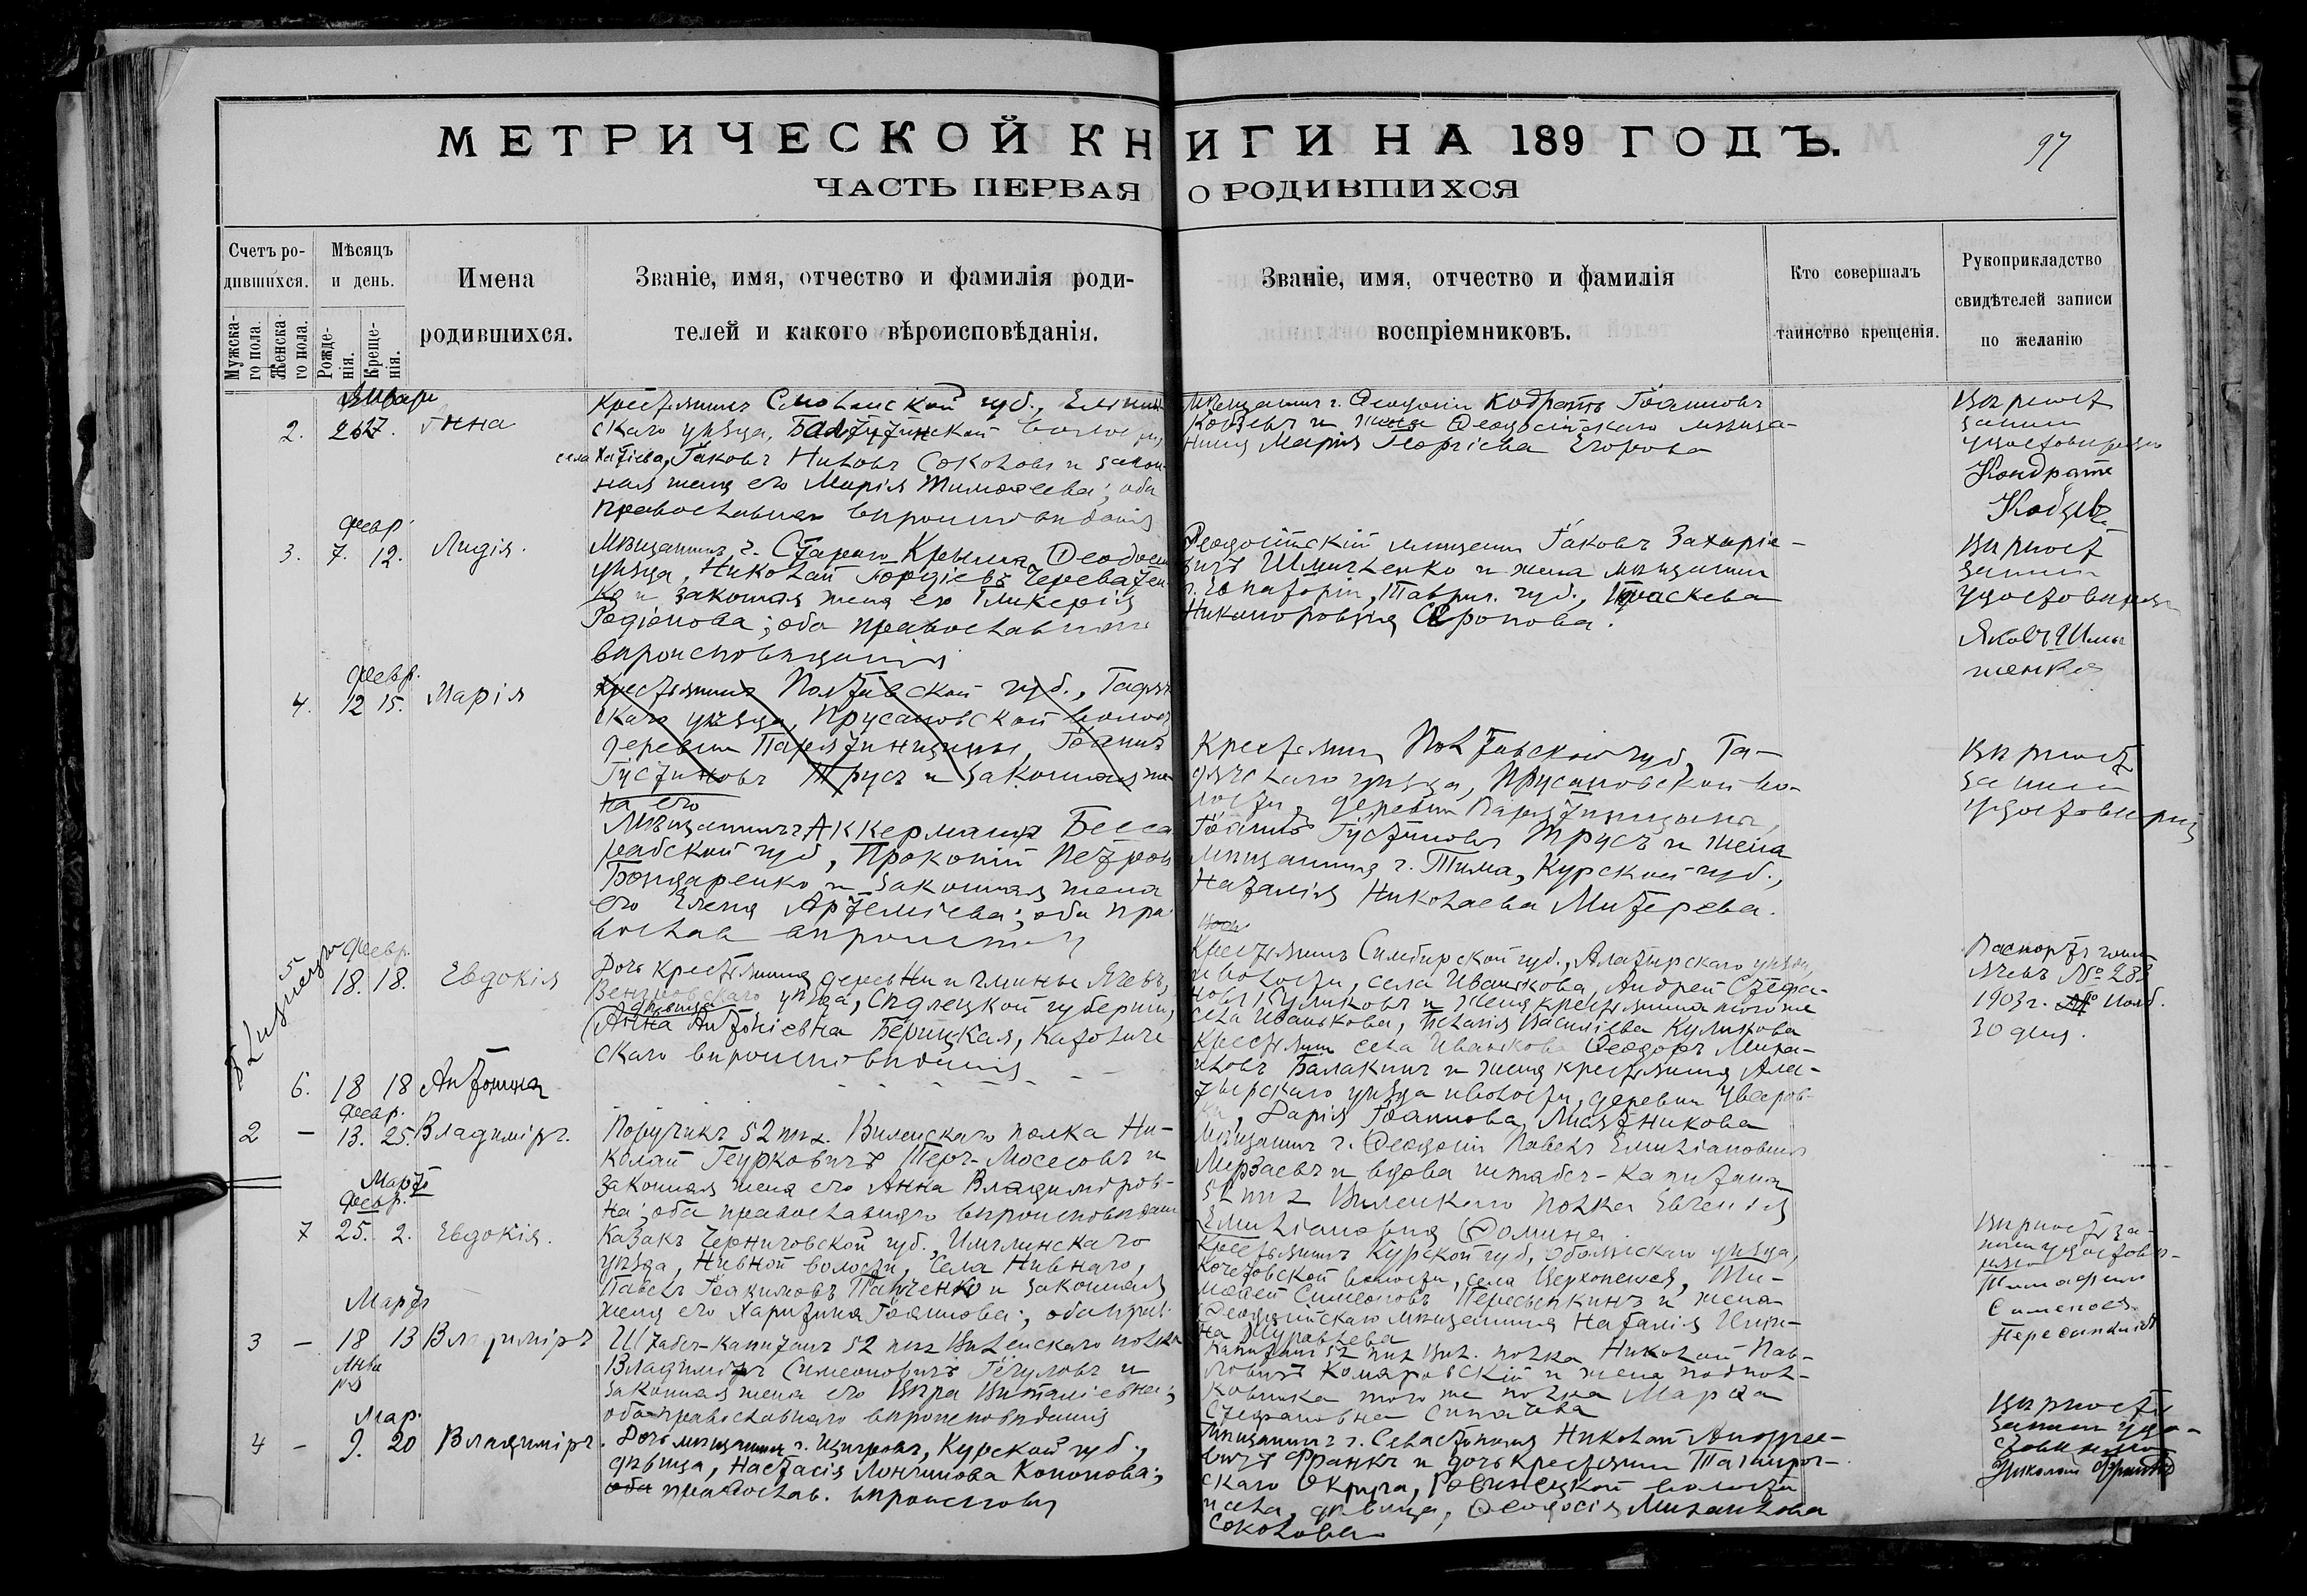 МЕТРИЧЕСКОЙ КНИГИ НА 189 ГОДЪ.
97
ЧАСТЬ ПЕРВАЯ О РОДИВШИХСЯ
Счетъ ро-
дившихся.
Мужска-
го пола.
Женска-
го пола.
Мѣсяцъ
и день.
Рожде-
нія.
Креще-
нія.
Имена
родившихся.
Званіе, имя, отчество и фамилія роди-
телей и какого вѣроисповѣданія.
Званіе, имя, отчество и фамилія
воспріемниковъ.
Кто совершалъ
таинство крещенія.
Рукоприкладство
свидѣтелей записи
по желанію
Январ
2. 26 27. Анна
Крестьянинъ Смоленской губ., Ельнин
скаго уѣзда, волости,
села Іаковъ Соколовъ и закон-
ная жена его Марія Тимоѳеева; оба
православнаго вѣроисповѣданія
Мѣщанинъ г. Ѳеодосіи Кодратъ Іоанновъ
Кобзевъ и жена Ѳеодосійскаго мѣща-
нина Марія Георгіева Егорова
Вѣрность
записи
удостовѣряю
Кондратъ
Кобзевъ
Февр.
3. 7. 12. Лидія.
Мѣщанинъ г. Стараго Крыма, Ѳеодос
уѣзда, Николай Гордіевъ Череватен
ко и законная жена его Гликерія
Родіонова; оба православнаго
вѣроисповѣданія
Ѳеодосійскій мѣщанинъ Іаковъ Захаріе-
вичъ Шмигленко и жена мѣщанина
г. Евпаторіи, Таврич. губ., Параскева
Никаноровна Сиропова.
Вѣрность
записи
удостовѣряю
Яковъ
Февр.
4. 12 15. Марія
Крестьянинъ Полтавской губ., Гадяч
скаго уѣзда, Прусановской волос
деревни Іоаннъ
Густиновъ Трусъ и законная же
на его
Мѣщанинъ г. Аккермана Бесса
рабской губ, Прокопій Петров
Бондаренко и законная жена
его Елена Артеміева; оба пра
вослав вѣроисповѣд
Крестьянинъ Полтавской губ, Га-
дячскаго уѣзда, Прусановской во-
лости, деревни
Іоаннъ Густиновъ Трусъ и жена
мѣщанина г. Тима, Курской губ.,
Наталія Николаева Митерева.
Вѣрность
записи
удостовѣряю
Близнецы
Февр.
5 18. 18. Евдокія
Дочь крестьянина деревни и гмины
Венгровскаго уѣзда, Сѣдлецкой губерніи,
дѣвица
Анна Антоніевна Берицкая, католиче
скаго вѣроисповѣданія
Крестьянинъ Симбирской губ., Алатырскаго уѣзда,
и волости, села Иванкова, Андрей Стефа-
новъ Куликовъ и жена крестьянина того же
села Иванькова, Пелагія Василіева Куликова
Паспортъ
№ 282
1903 г. Нояб.
30 дня.
6. 18 18 Антонина
Крестьянинъ села Иванкова Ѳеодоръ Миха-
иловъ Балакинъ и жена крестьянина Ала-
тырскаго уѣзда и волости, деревни
Дарія Іоаннова Мясникова
Февр.
2 – 13. 25. Владиміръ.
Поручикъ 52 пѣх. Виленскаго полка Ни-
колай Георковичъ Теръ-Мосесовъ и
законная жена его Анна Владиміров-
на; оба православнаго вѣроисповѣданія
Мѣщанинъ г. Ѳеодосіи Павелъ Емиліановичъ
Мерзаевъ и вдова штабсъ-капитана
52 пѣх Виленскаго полка Евгенія
Емиліановна Ѳомина
Мартъ
Февр.
7 25. 2. Евдокія.
Казакъ Черниговской губ., Имглинскаго
уѣзда, Нивной волости, села Нивнаго,
Павелъ Іоакимовъ Панченко и законная
жена его Харитина Іоаннова; оба прав.
Крестьянинъ Курской губ, Обоянскаго уѣзда,
Кочетовской волости, села Верхопенья, Ти-
моѳей Симеоновъ Пересыпкинъ и жена
Ѳеодосійскаго мѣщанина Наталія
Журавлева
Вѣрность за-
писи удостовѣ-
ряю
Тимофей
Сименовъ
Пересыпкинъ
Мартъ
3 – 18 13 Владиміръ
Янва
ря
Штабсъ-капитанъ 52 пѣх Виленскаго полка
Владиміръ Симеоновичъ и
законная жена его Вѣра Виталіевна;
оба православнаго вѣроисповѣданія
Капитанъ 52 пѣх Вил. полка Николай Пав-
ловичъ Комаровскій и жена подпол-
ковника того же полка Марѳа
Стефановна
Мар.
4 – 9. 20 Владиміръ.
Дочь мѣщанина г. Щигровъ, Курской губ.,
дѣвица, Настасія Логгинова Кононова;
оба православ. вѣроисповѣд
Мѣщанинъ г. Севастополя Николай Андрее-
вичъ Франкъ и дочь крестьянина Таганрог-
скаго округа, Ровенецкой волости
и села, дѣвица, Ѳеодосія Михайлова
Соколова
Вѣрность
записи удо-
стовѣряю
Николай Франкъ